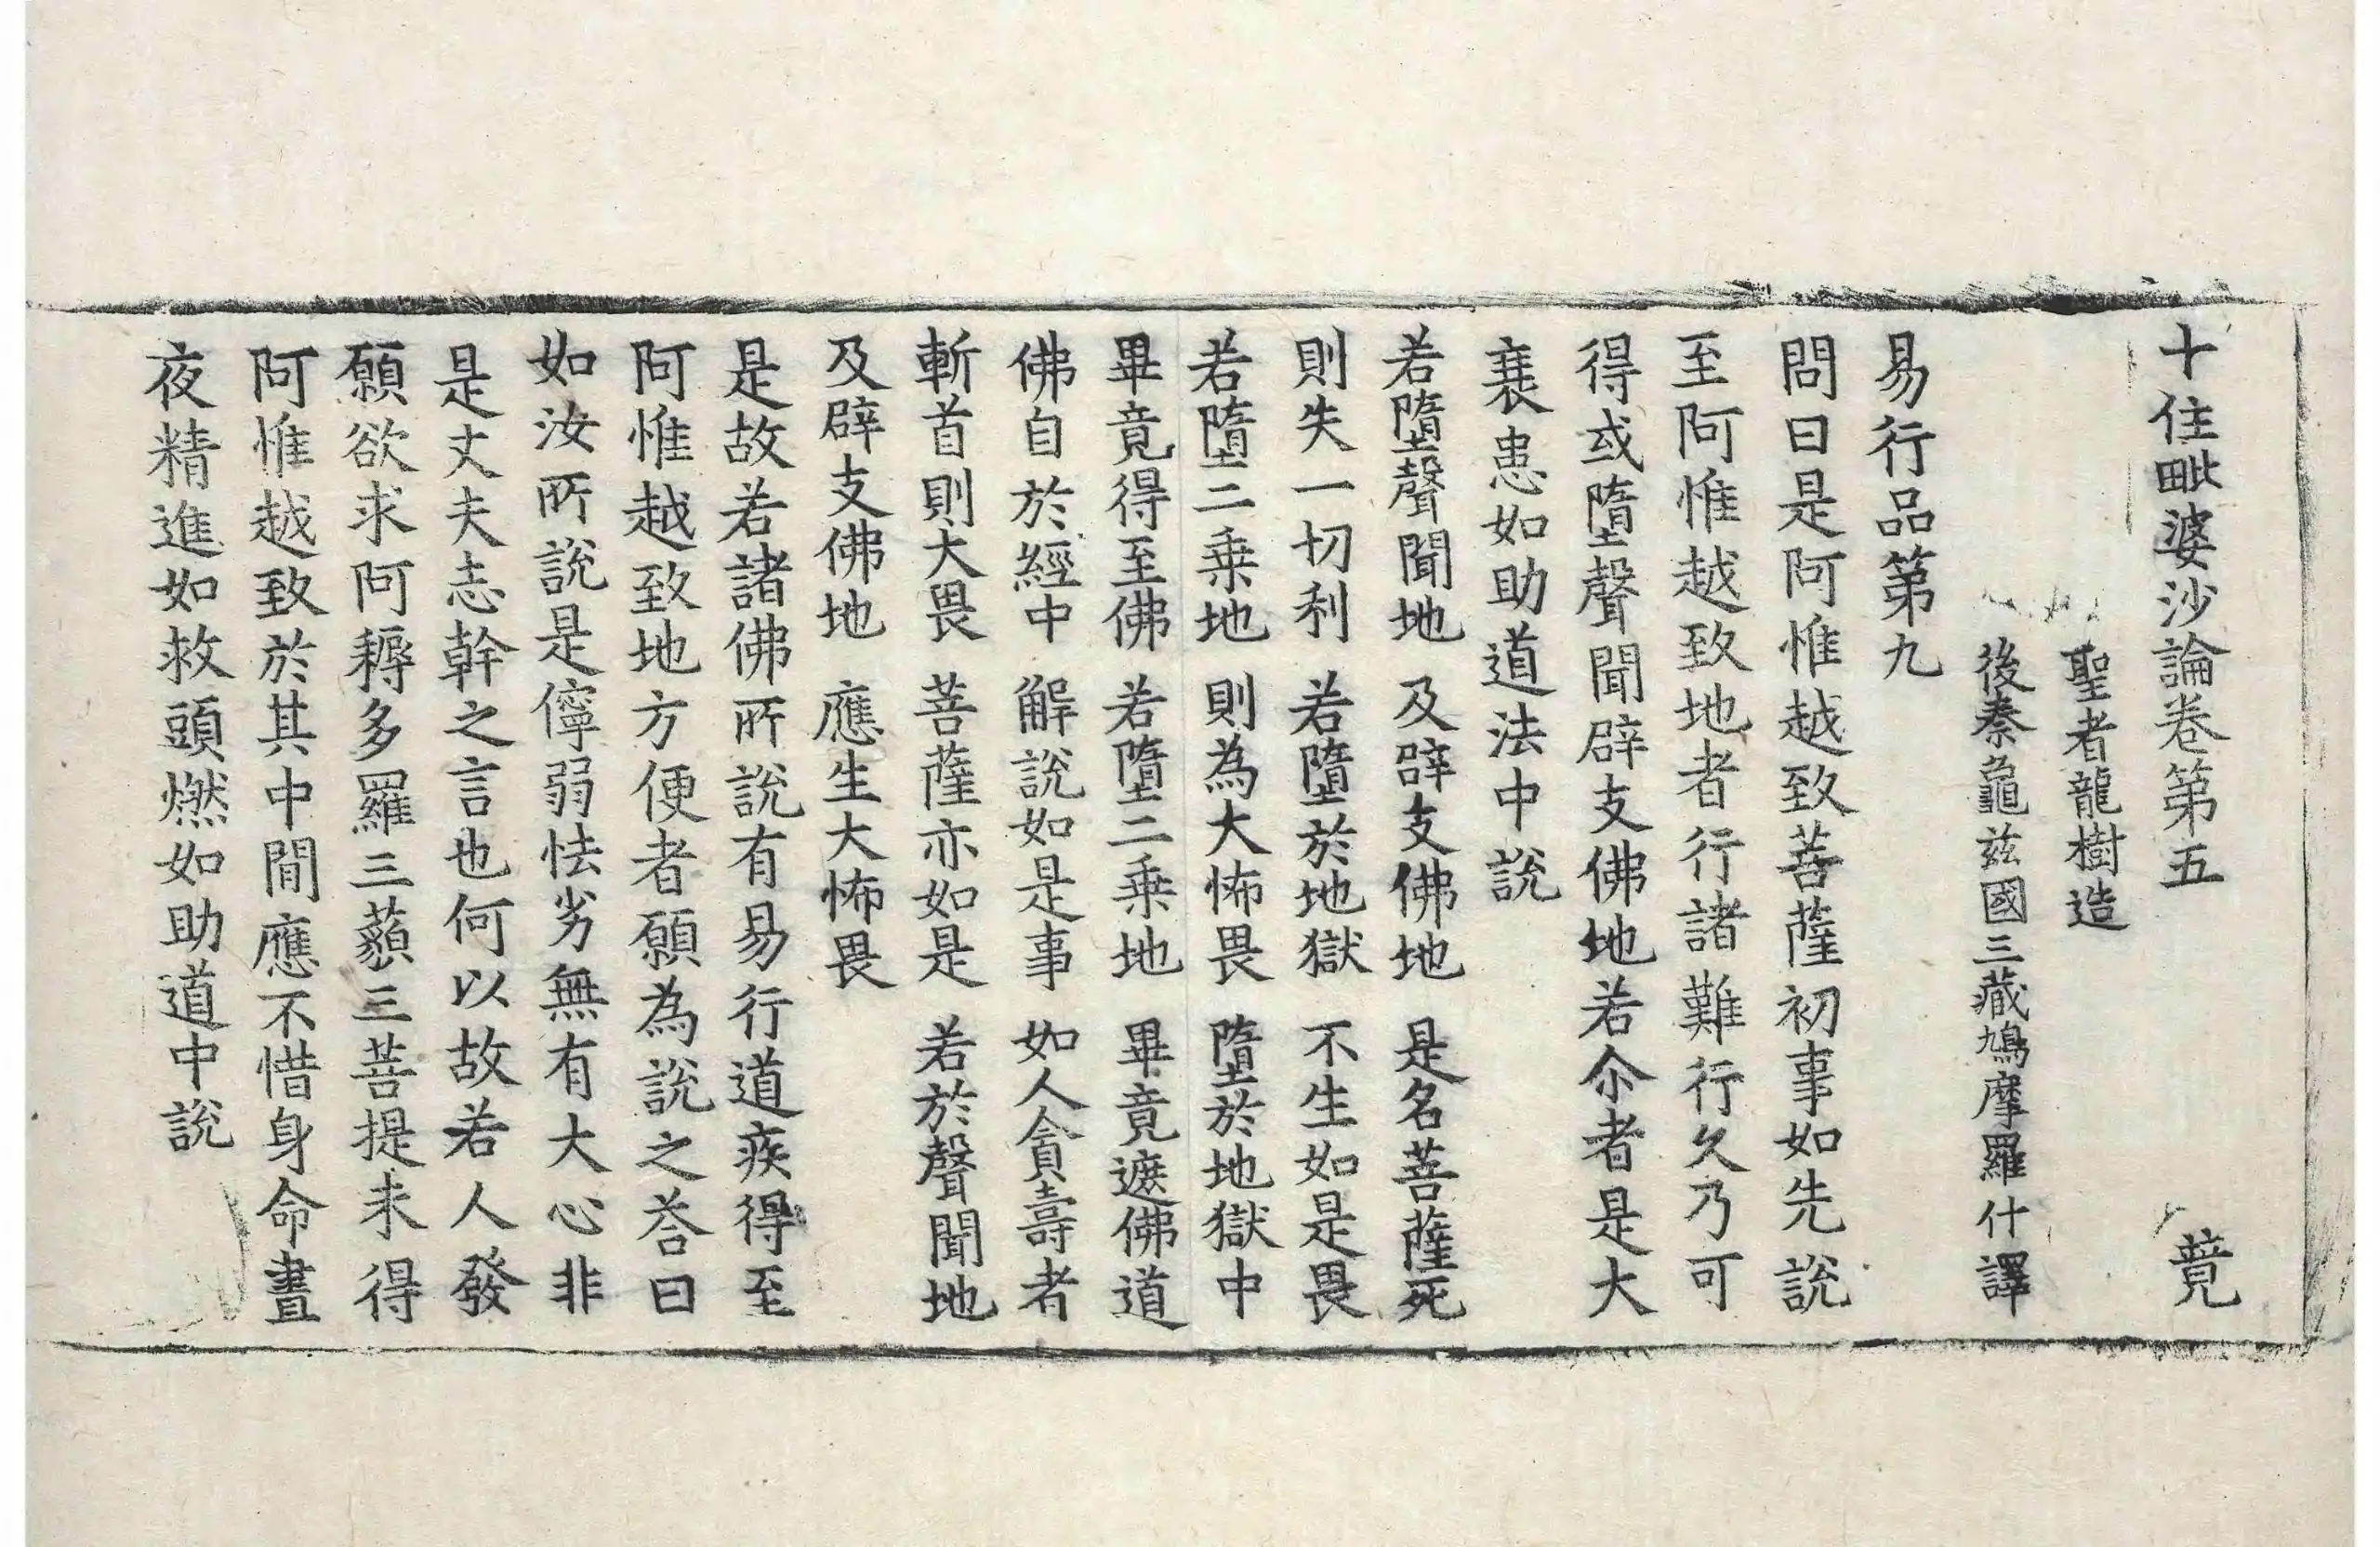 十住毗婆沙論卷第五　　　藑
聖者龍樹造
後秦龜茲國三藏鳩摩羅什譯
易行品第九
問曰是阿惟越致菩薩初事如先說
至阿惟越致地者行諸難行久乃可
得或墮聲聞辟支佛地若尒者是大
衰患如助道法中說
若墮聲聞地　及辟支佛地　是名菩薩死
則失一切利　若墮於地獄　不生如是畏
若墮二乘地　則為大怖畏　墮於地獄中
畢竟得至佛　若墮二乘地　畢竟遮佛道
佛自於經中　解說如是事　如人貪壽者
斬首則大畏　菩薩亦如是　若於聲聞地
及辟支佛地　應生大怖畏
是故若諸佛所說有易行道疾得至
阿惟越致地方便者願為說之荅曰
如汝所說是儜弱怯劣無有大心非
是丈夫志幹之言也何以故若人發
願欲求阿耨多羅三藐三菩提未得
阿惟越致於其中間應不惜身命晝
夜精進如救頭燃如助道中說